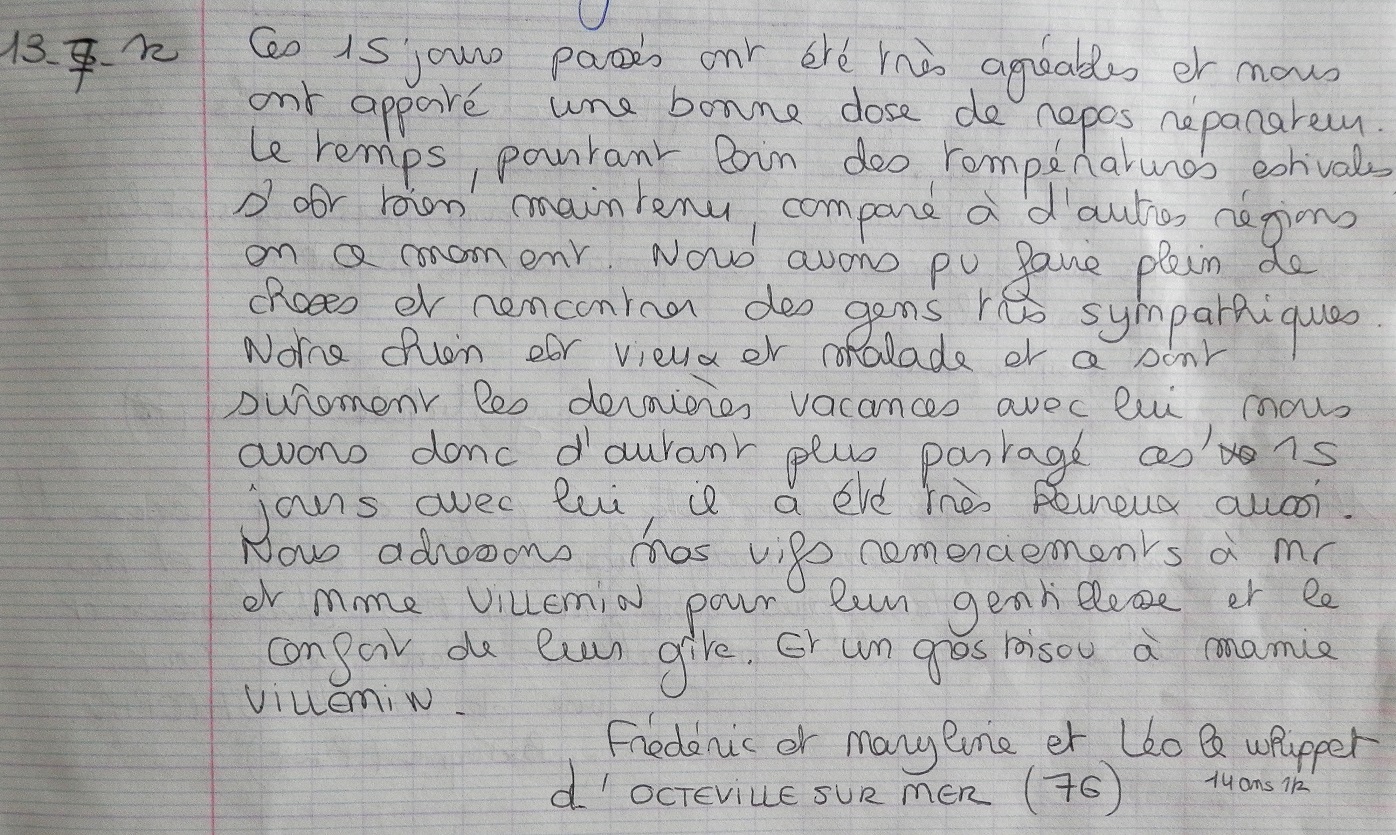 13-7-12 Ces 15 jours passés ont été très agréables et nous
ont apporté une bonne dose de repos réparateur.
Le temps, pourtant loin des températures estivales
s'est bien maintenu, comparé à d'autres régions
en ce moment. Nous avons pu faire plein de
choses et rencontrer des gens très sympathiques.
Notre chien est vieux et malade et ce sont
sûrement les dernières vacances avec lui, nous
avons donc d'autant plus partagé ces 15
jours avec lui, il a été très heureux aussi.
Nous adressons nos vifs remerciements à Mr
et Mme VILLEMIN pour leur gentillesse et le
confort de leur gîte. Et un gros bisou à mamie
VILLEMIN.
Frédéric et Maryline et Léo le whippet
d'OCTEVILLE SUR MER (76) 14 ans 1/2